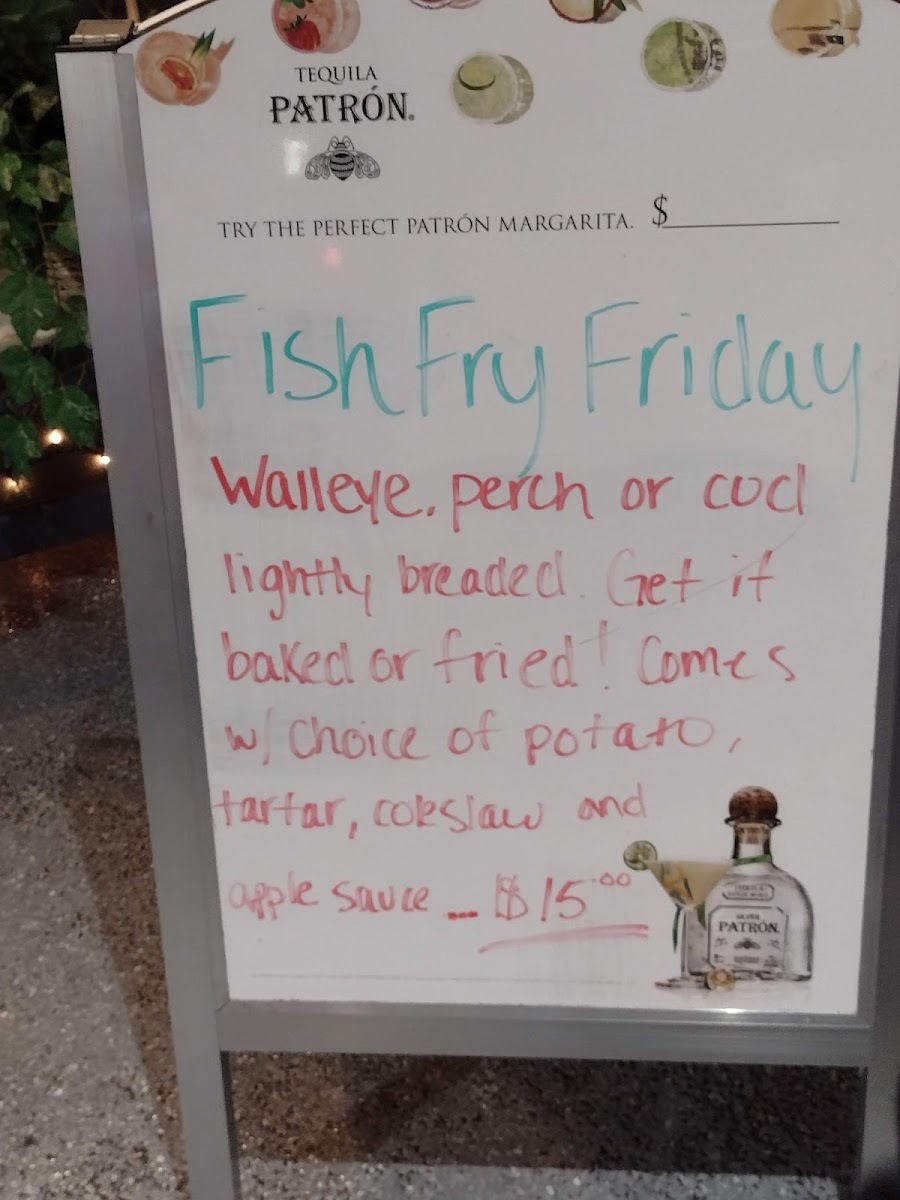 TEQUILA
PATRÓN®
TRY THE PERFECT PATRÓN MARGARITA. $
Fish Fry Friday
Walleye, perch or cod
lightly breaded. Get it
baked or fried! Comes
w/ choice of potato,
tartar, coleslaw and
apple sauce -- $15.00
PATRÓN